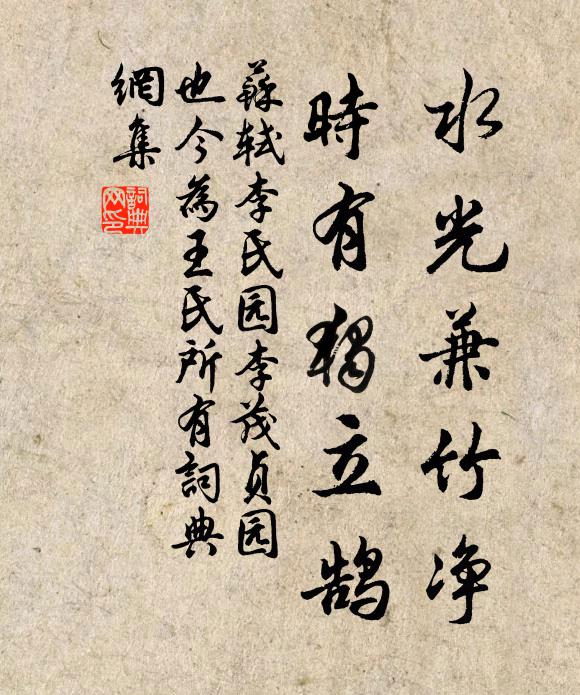 水光兼竹净
時有獨立鹄
蘇軾李氏园李茂貞园
也今為王氏所有詞典
網集
詞典网印